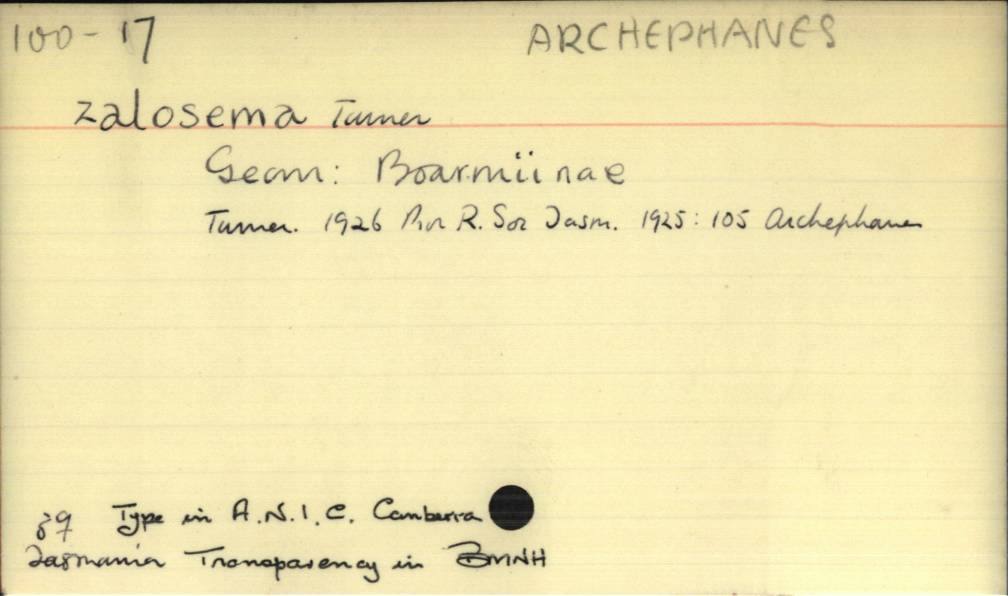 100-17 ARCHEPHANES
zalosema Turner
Geom: Boarmiinae
Turner. 1926 Proc R. Soc Tasm. 1925: 105 Archephanes
Type in A.N.I.C. Canberra
Tasmania Transparency in BMNH